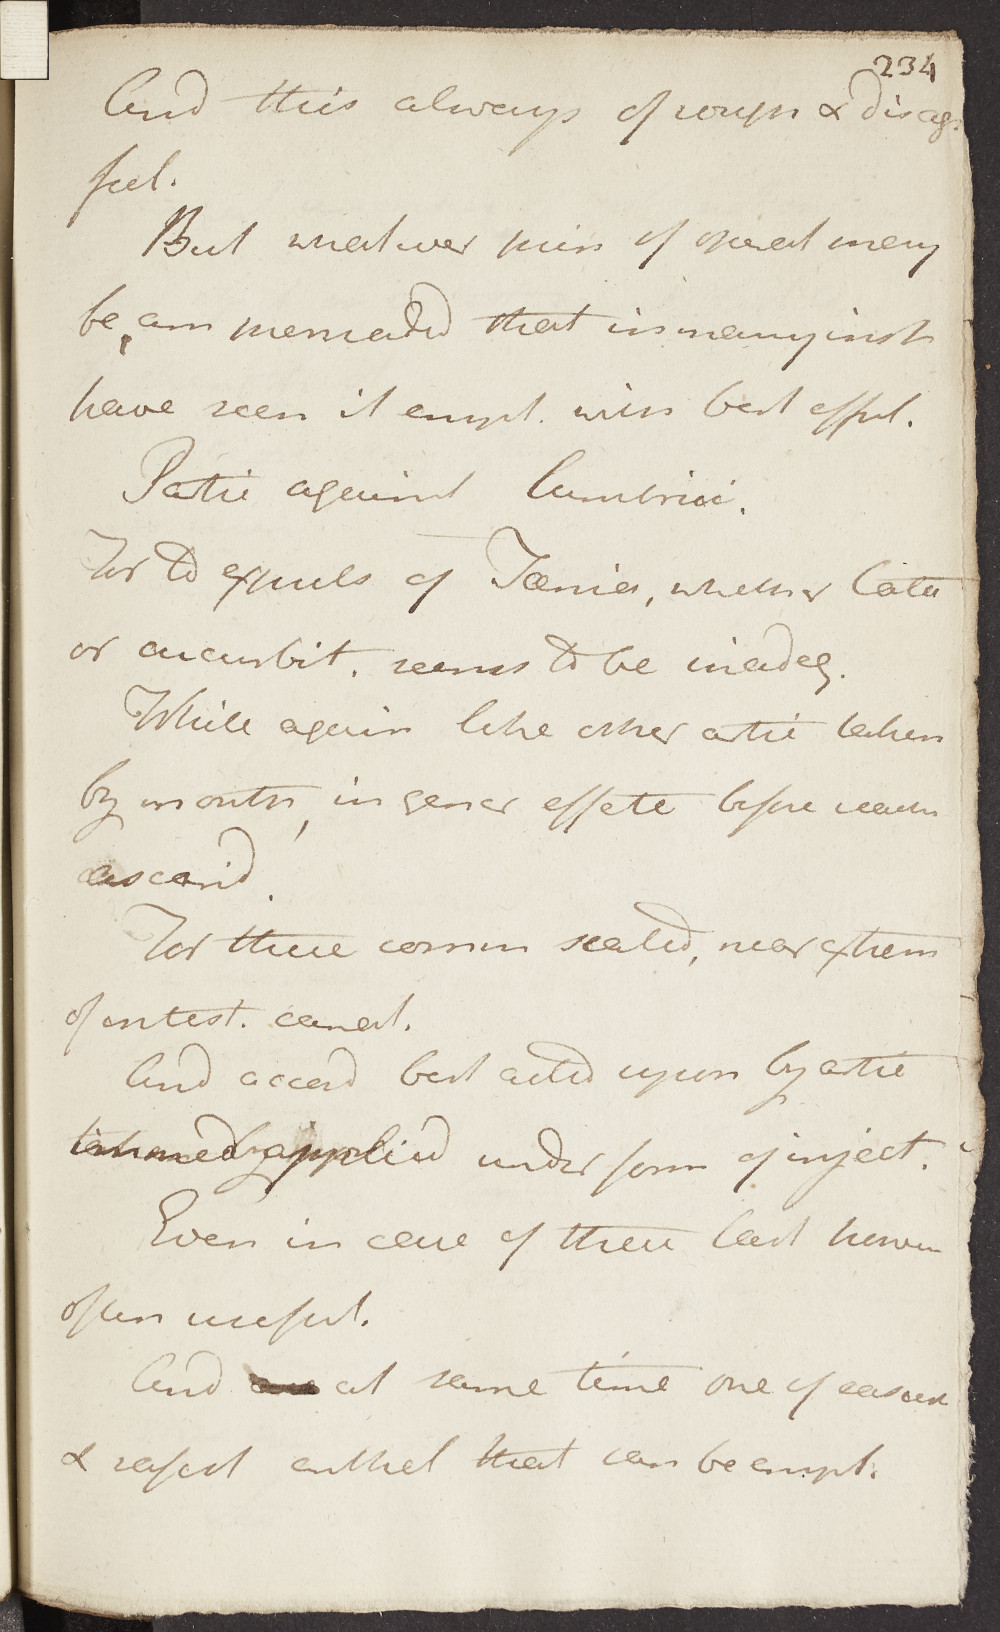 234
And this always of rough & disag.
feel.
But whatever prin of operat may
be, am persuaded that in many inst
have seen it empl. with best effect.
Partic against Lumbrici.
For to expuls of Taenia, whether Lata
or cucurbit. seems to be inadeq.
While again like other artic taken
by mouth, in gener effete before reach
ascarid.
For these comm seated, near extrem
of intest. canal.
And accord best acted upon by artic
applied under form of inject.
Even in case of these last however
often useful.
And at same time one of easiest
& safest anthel that can be empl.